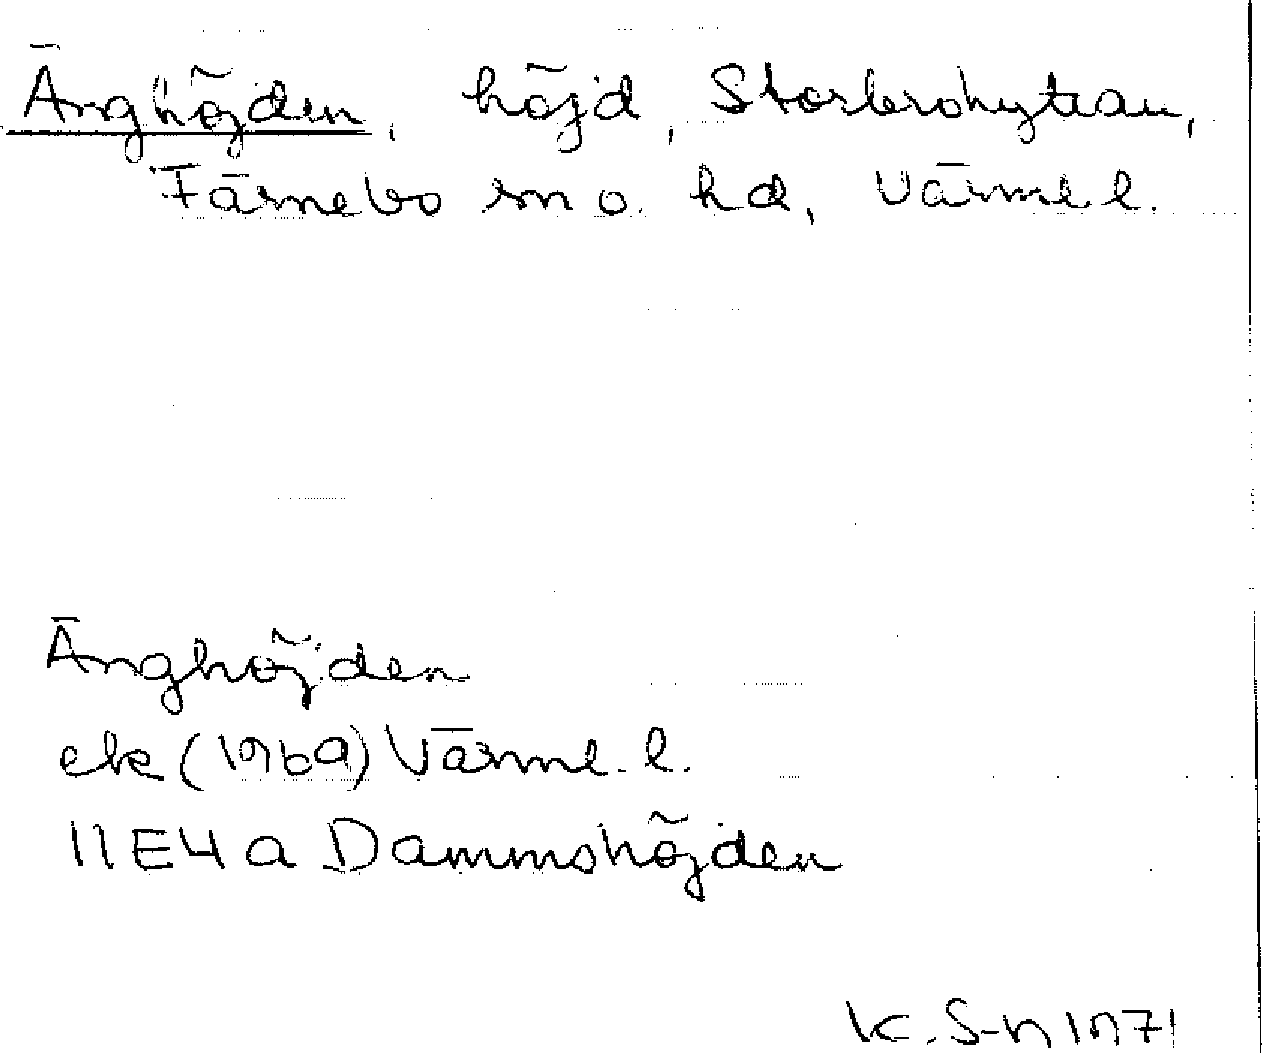 Änghöjden, höjd, Storbrohyttan,
Färnebo sn o. hd, Värml l.
Änghöjden
ek (1969) Värml. l.
11E4a Dammshöjden
K. S-n 1971